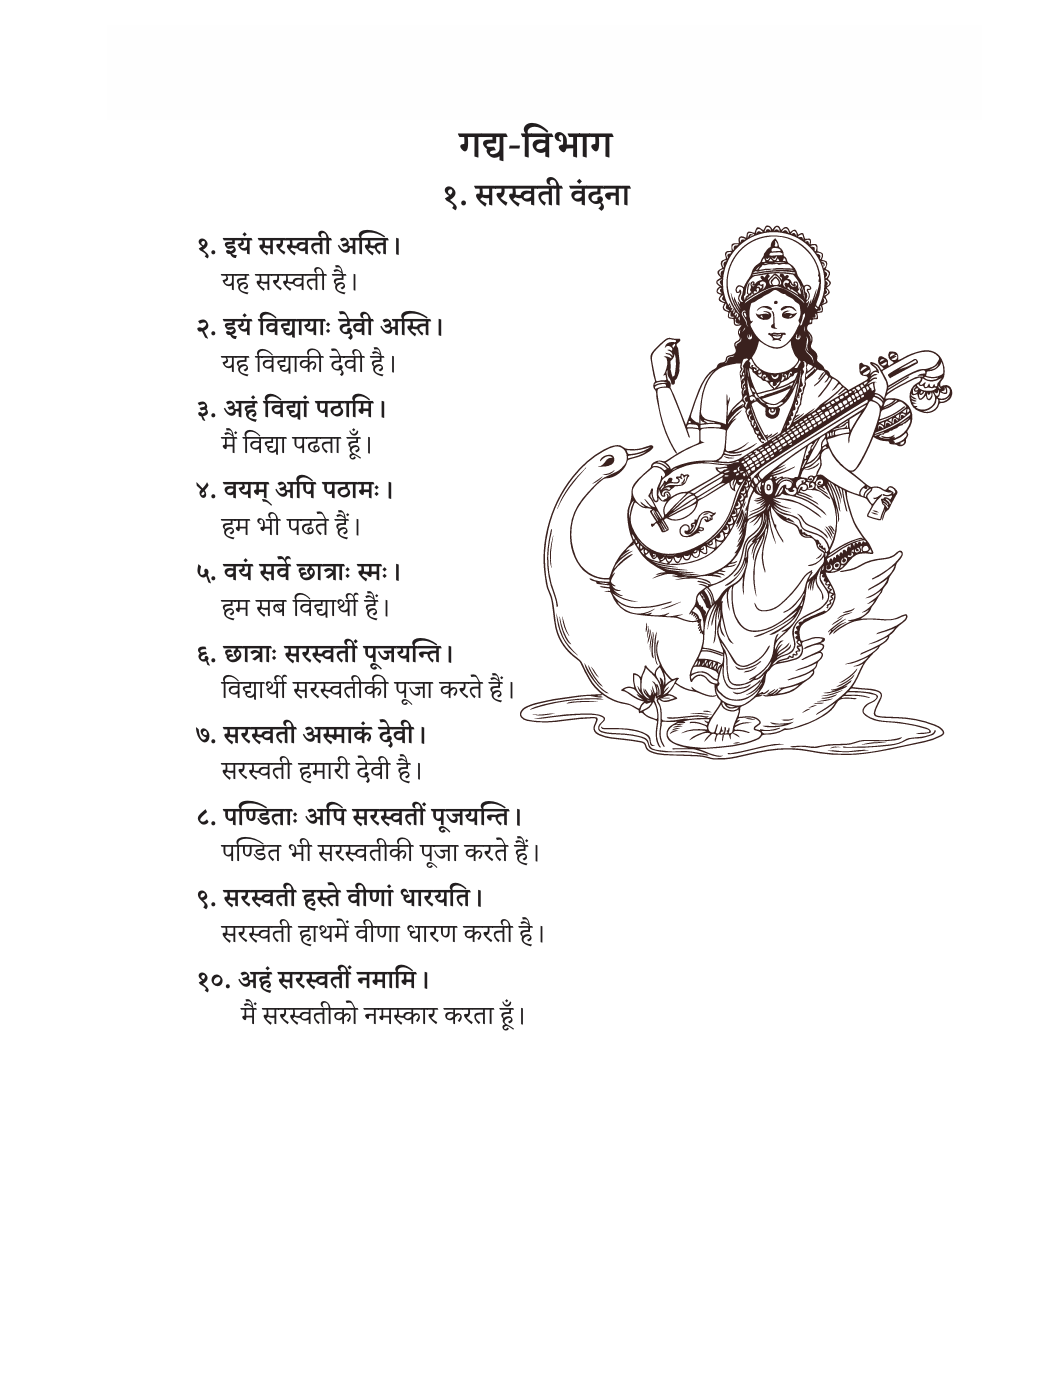 गद्य-विभाग
१. सरस्वती वंदना
१. इयं सरस्वती अस्ति।
यह सरस्वती है।
२. इयं विद्यायाः देवी अस्ति।
यह विद्याकी देवी है।
३. अहं विद्यां पठामि।
मैं विद्या पढता हूँ।
४. वयम् अपि पठामः।
हम भी पढते हैं।
५. वयं सर्वे छात्राः स्मः।
हम सब विद्यार्थी हैं।
६. छात्राः सरस्वतीं पूजयन्ति।
विद्यार्थी सरस्वतीकी पूजा करते हैं।
७. सरस्वती अस्माकं देवी।
सरस्वती हमारी देवी है।
८. पण्डिताः अपि सरस्वतीं पूजयन्ति।
पण्डित भी सरस्वतीकी पूजा करते हैं।
९. सरस्वती हस्ते वीणां धारयति।
सरस्वती हाथमें वीणा धारण करती है।
१०. अहं सरस्वतीं नमामि।
मैं सरस्वतीको नमस्कार करता हूँ।